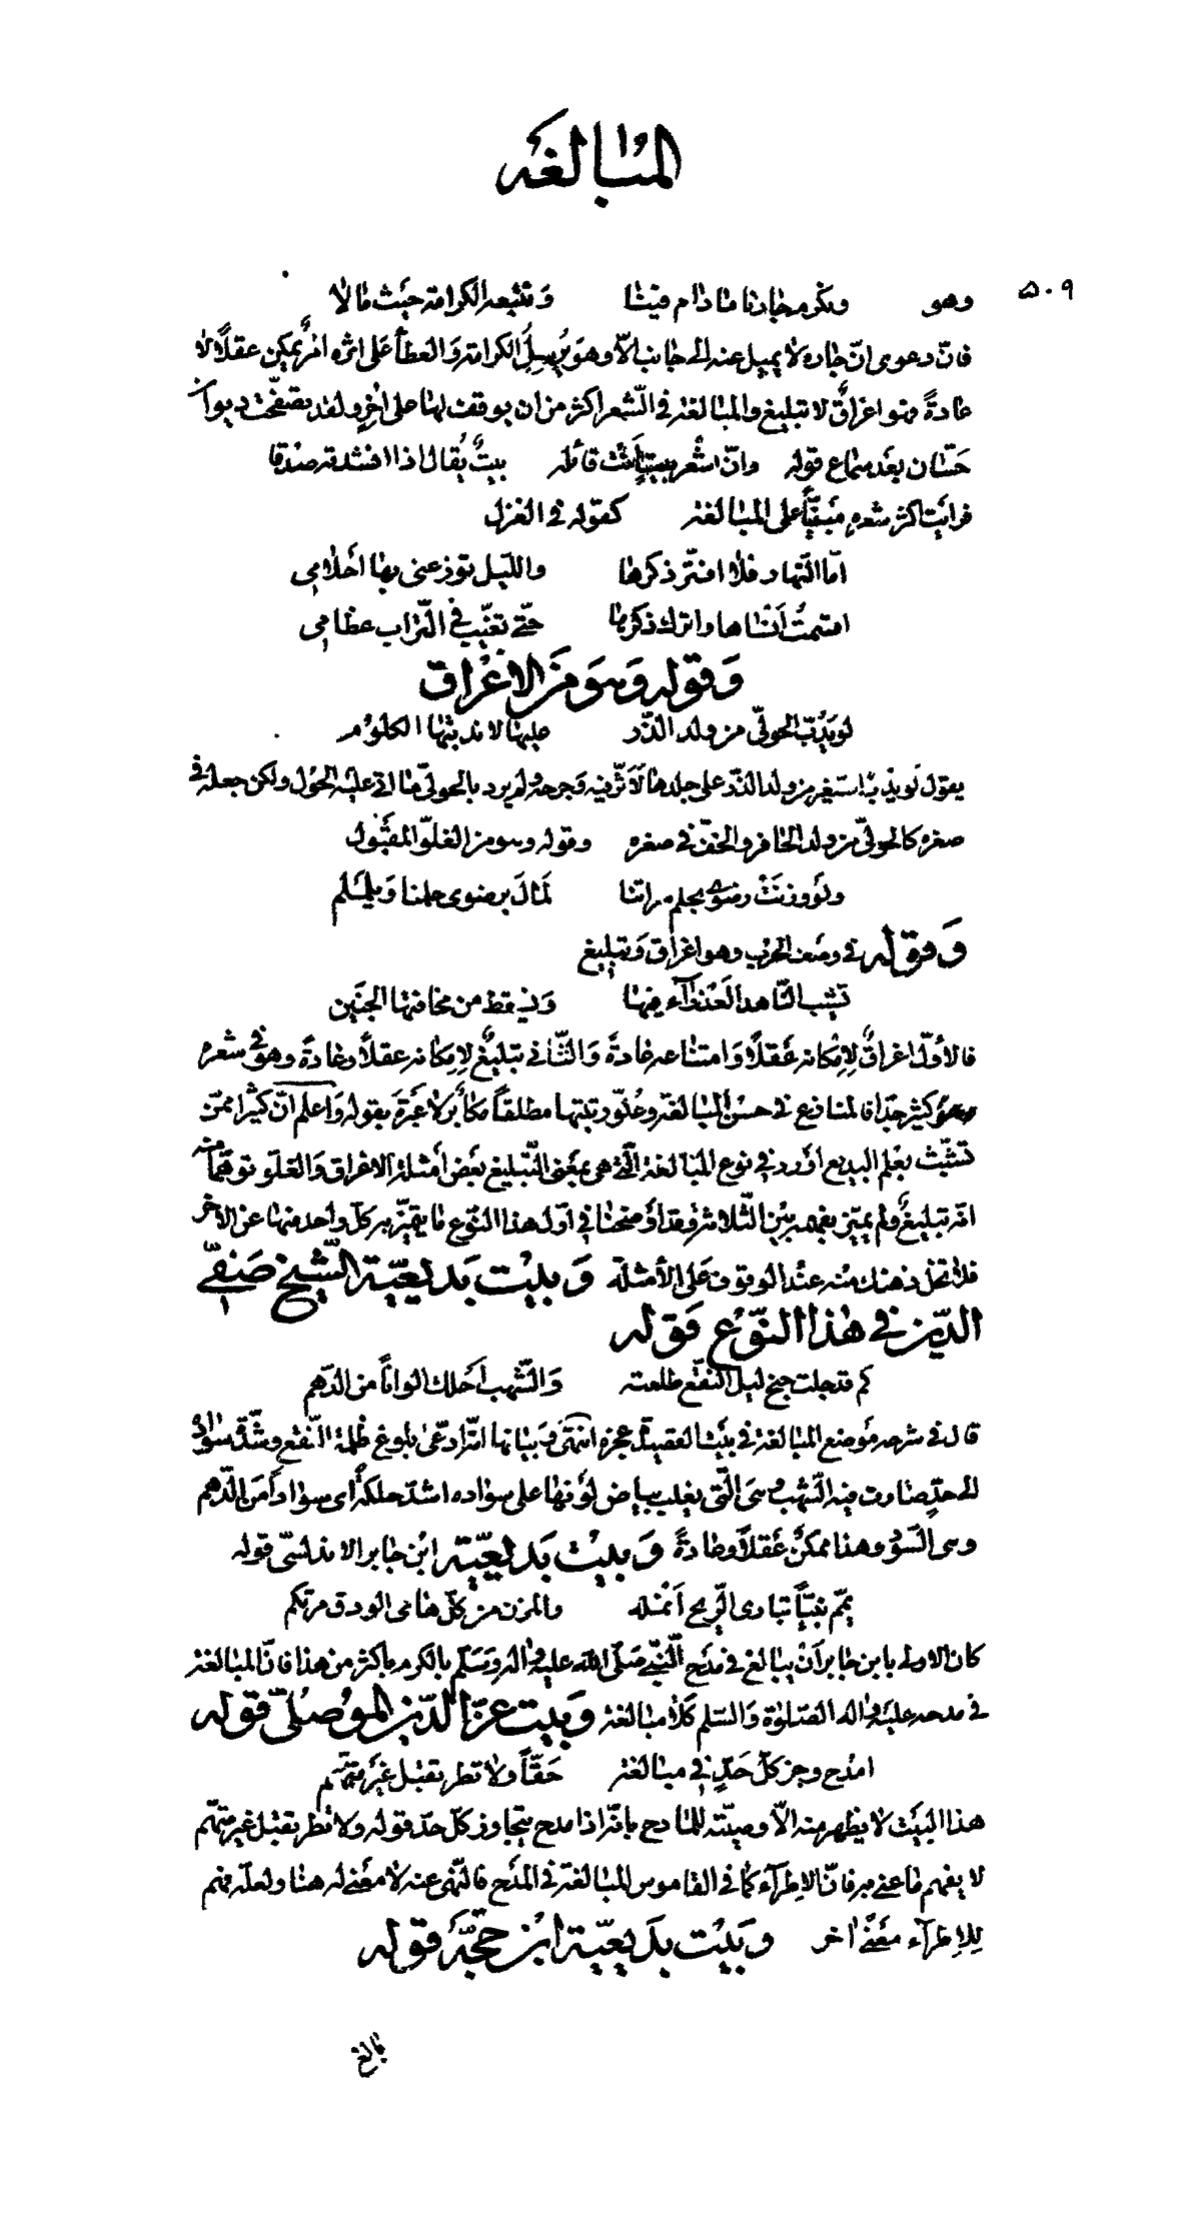 المبالغه
۵۰۹
وهو ونكرم جارنا ما دام فينا ونتبعه الكرامة حيث مالا
فانّ دعوى انّ جاره لا يميل عنه الى جانب الّا وهو يرسل الكرامة والعطاء على اثره امرٌ يمكن عقلاً لا
عادةً فهو اغراقٌ لا تبليغ والمبالغة فى الشعر اكثر من ان يوقف لها على اٰخرٍ ولقد تصفّحت ديوان
حسّان بعد سماع قوله وانّ اشعر بيتٍ انت قائله بيتٌ يقال اذا انشدته صدقا
فرايت اكثر شعره مبنيّاً على المبالغة كقوله فى الغزل
امّا النهار فلا افتّر ذكرها والليل توزعنى بها احلامى
اقسمتُ انساها واترك ذكرها حتّى تغيّب فى التّراب عظامى
وقوله وهو من الاغراق
لو يدبّ الحولىّ من ولد الذّر عليها لاندبتها الكلوم
يقول لو يدبّ الصغير من ولد الذّر على جلدها لأثّر فيه وجرحه ولم يرد بالحولىّ ما اتى عليه الحول ولكن جعله فى
صغره كالحولىّ من ولد الحافر والخفّ فى صغره وقوله وهو من الغلوّ المقبول
ولو وزنت رضوى بحلم سراتنا لمال برضوى حلمنا ويلملم
وقوله فى وصف الحرب وهو اغراق وتبليغ
تشيب الناهد العذراء فيها ويسقط من مخافتها الجنين
فالأوّل اغراقٌ لإمكانه عقلاً وامتناعه عادةً والثّانى تبليغٌ لإمكانه عقلاً وعادةً وهو فى شعره
كثير جدّاً فالمنازع فى حسن المبالغة وعلوّ رتبتها مطلقاً مكابر لا عبرة بقوله واعلم انّ كثيراً ممّن
تشبّث بعلم البديع اورد فى نوع المبالغة الّتى هى بمعنى التّبليغ بعض أمثلة الاغراق والغلوّ توهّماً منه
انّه تبليغٌ ولم يميّز بفهمه بين الثّلاثة وقد اوضحنا فى اوّل هذا النّوع ما يتميّز به كلّ واحد منها عن الاٰخر
فلا تخل ذهنك منه عند الوقوف على الأمثلة وبيت بديعيّة الشّيخ صفىّ
الدّين فى هذا النّوع قوله
كم قد جلت جنح ليل النقع طلعته والشّهب احلك الواناً من الدّهم
قال فى شرحه موضع المبالغة فى بيت القصيدة عجزه انتهى وبيانها انّه ادّعى بلوغ ظلمة النّقع وشدّة سواده
الى حدٍّ صارت فيه الشّهب وهى الّتى يغلب بياض لونها على سواده اشدّ حلكةً اى سواداً من الدّهم
وهى السّود وهذا ممكنٌ عقلاً وعادةً وبيت بديعيّة ابن جابر الاندلسىّ قوله
يمّم نبيّاً تبارى الرّيح أنمله والمزن من كلّ هامى الودق مرتكم
كان الاولى بابن جابر أن يبالغ فى مدح النّبىّ صلّى الله عليه واٰله وسلّم بالكرم باكثر من هذا فانّ المبالغة
فى مدحه عليه واٰله الصّلوة والسّلم كلا مبالغة وبيت عزّ الدّين الموصلىّ قوله
امدح وجز كلّ حدٍّ فى مبالغة حقّاً ولا تطر تقبل غير متّهم
هذا البيت لا يظهر منه الّا وصيّته للمادح بانّه اذا مدح يتجاوز كلّ حدّ قوله ولا تطر تقبل غير متّهم
لا يفهم ما عنى به فانّ الاطراء كما فى القاموس المبالغة فى المدح فالنّهى عنه لا معنى له هنا ولعلّه فهم
للإطراء معنىً اٰخر وبيت بديعيّة ابن حجّة قوله
بالغ